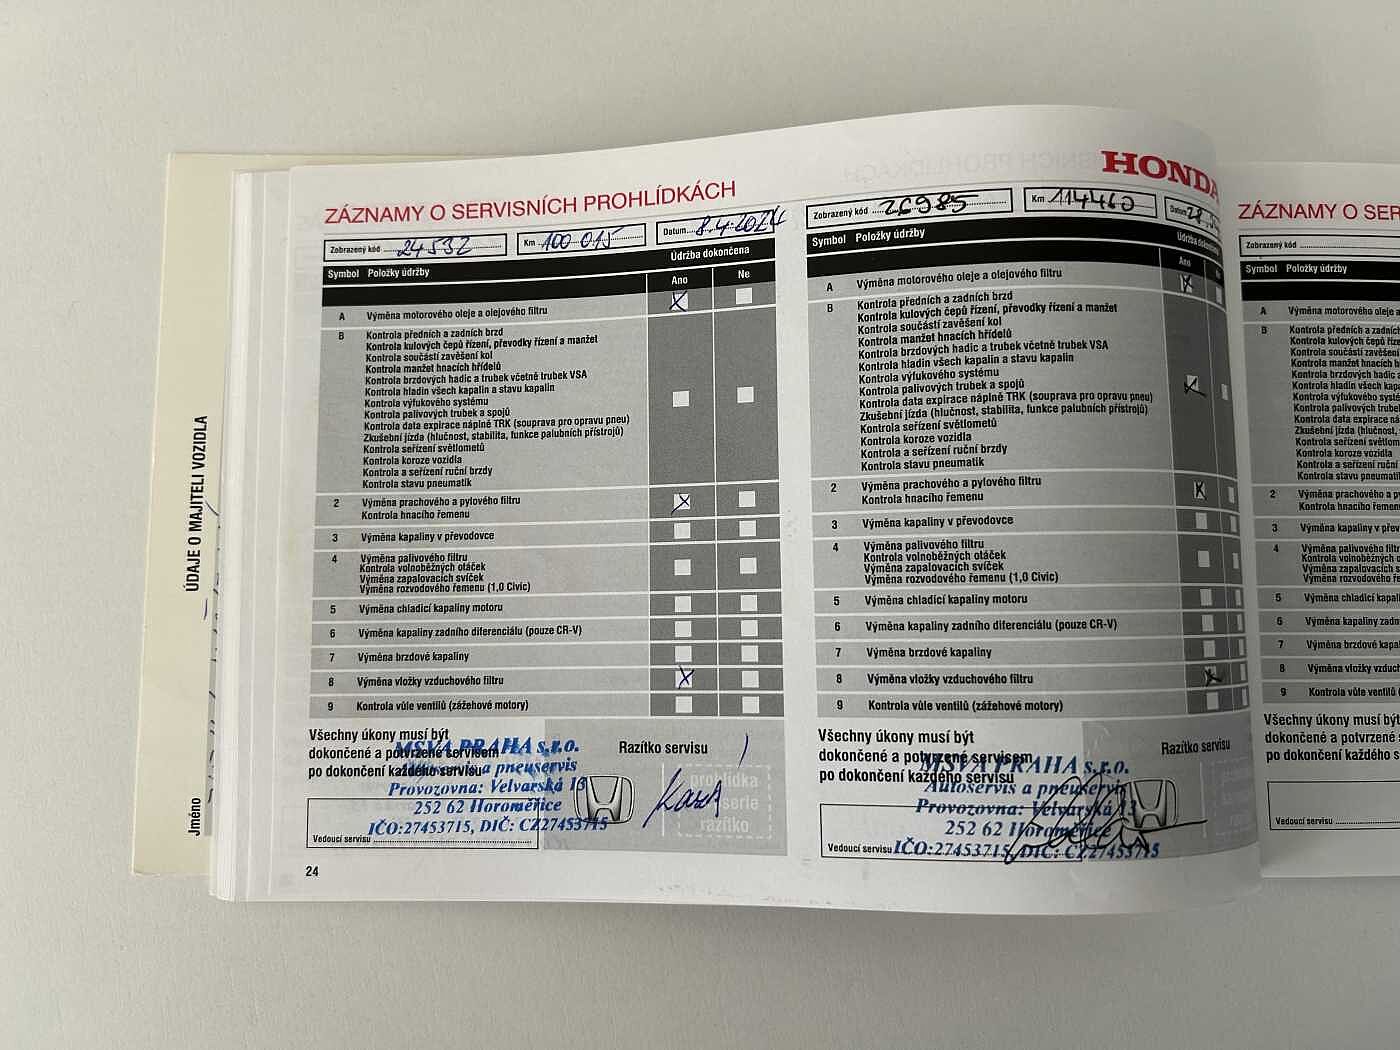 ÚDAJE O MAJITELI VOZIDLA
Jméno
ZÁZNAMY O SERVISNÍCH PROHLÍDKÁCH
Zobrazený kód 24532 Km 100 015 Datum 8.4.2024
Symbol Položky údržby Údržba dokončena
Ano Ne
A Výměna motorového oleje a olejového filtru
B Kontrola předních a zadních brzd
Kontrola kulových čepů řízení, převodky řízení a manžet
Kontrola součástí zavěšení kol
Kontrola manžet hnacích hřídelů
Kontrola brzdových hadic a trubek včetně trubek VSA
Kontrola hladin všech kapalin a stavu kapalin
Kontrola výfukového systému
Kontrola palivových trubek a spojů
Kontrola data expirace náplně TRK (souprava pro opravu pneu)
Zkušební jízda (hlučnost, stabilita, funkce palubních přístrojů)
Kontrola seřízení světlometů
Kontrola koroze vozidla
Kontrola a seřízení ruční brzdy
Kontrola stavu pneumatik
2 Výměna prachového a pylového filtru
Kontrola hnacího řemenu
3 Výměna kapaliny v převodovce
4 Výměna palivového filtru
Kontrola volnoběžných otáček
Výměna zapalovacích svíček
Výměna rozvodového řemenu (1,0 Civic)
5 Výměna chladicí kapaliny motoru
6 Výměna kapaliny zadního diferenciálu (pouze CR-V)
7 Výměna brzdové kapaliny
8 Výměna vložky vzduchového filtru
9 Kontrola vůle ventilů (zážehové motory)
Všechny úkony musí být
dokončené a potvrzené servisem
po dokončení každého servisu
Razítko servisu
MSVA PRAHA s.r.o.
Autoservis a pneuservis
Provozovna: Velvarská 13
252 62 Horoměřice
IČO:27453715, DIČ: CZ27453715
prohlídka
razítko
Vedoucí servisu
24
HONDA
Zobrazený kód 26985 Km 114460 Datum 28.
Symbol Položky údržby Údržba dokončena
Ano
A Výměna motorového oleje a olejového filtru
B Kontrola předních a zadních brzd
Kontrola kulových čepů řízení, převodky řízení a manžet
Kontrola součástí zavěšení kol
Kontrola manžet hnacích hřídelů
Kontrola brzdových hadic a trubek včetně trubek VSA
Kontrola hladin všech kapalin a stavu kapalin
Kontrola výfukového systému
Kontrola palivových trubek a spojů
Kontrola data expirace náplně TRK (souprava pro opravu pneu)
Zkušební jízda (hlučnost, stabilita, funkce palubních přístrojů)
Kontrola seřízení světlometů
Kontrola koroze vozidla
Kontrola a seřízení ruční brzdy
Kontrola stavu pneumatik
2 Výměna prachového a pylového filtru
Kontrola hnacího řemenu
3 Výměna kapaliny v převodovce
4 Výměna palivového filtru
Kontrola volnoběžných otáček
Výměna zapalovacích svíček
Výměna rozvodového řemenu (1,0 Civic)
5 Výměna chladicí kapaliny motoru
6 Výměna kapaliny zadního diferenciálu (pouze CR-V)
7 Výměna brzdové kapaliny
8 Výměna vložky vzduchového filtru
9 Kontrola vůle ventilů (zážehové motory)
Všechny úkony musí být
dokončené a potvrzené servisem
po dokončení každého servisu
Razítko servisu
MSVA PRAHA s.r.o.
Autoservis a pneuservis
Provozovna: Velvarská 13
252 62 Horoměřice
IČO:27453715, DIČ: CZ27453715
Vedoucí servisu
ZÁZNAMY O SER
Zobrazený kód
Symbol Položky údržby
A Výměna motorového oleje a
B Kontrola předních a zadních b
Kontrola kulových čepů řízení
Kontrola součástí zavěšení
Kontrola manžet hnacích h
Kontrola brzdových hadic a
Kontrola hladin všech kapa
Kontrola výfukového systé
Kontrola palivových trubek
Kontrola data expirace nápl
Zkušební jízda (hlučnost,
Kontrola seřízení světlome
Kontrola koroze vozidla
Kontrola a seřízení ruční
Kontrola stavu pneumatik
2 Výměna prachového a p
Kontrola hnacího řemenu
3 Výměna kapaliny v přev
4 Výměna palivového filtru
Kontrola volnoběžných otáč
Výměna zapalovacích svíček
Výměna rozvodového řeme
5 Výměna chladicí kapal
6 Výměna kapaliny zadn
7 Výměna brzdové kapa
8 Výměna vložky vzduch
9 Kontrola vůle ventilů (
Všechny úkony musí být
dokončené a potvrzené s
po dokončení každého s
Vedoucí servisu